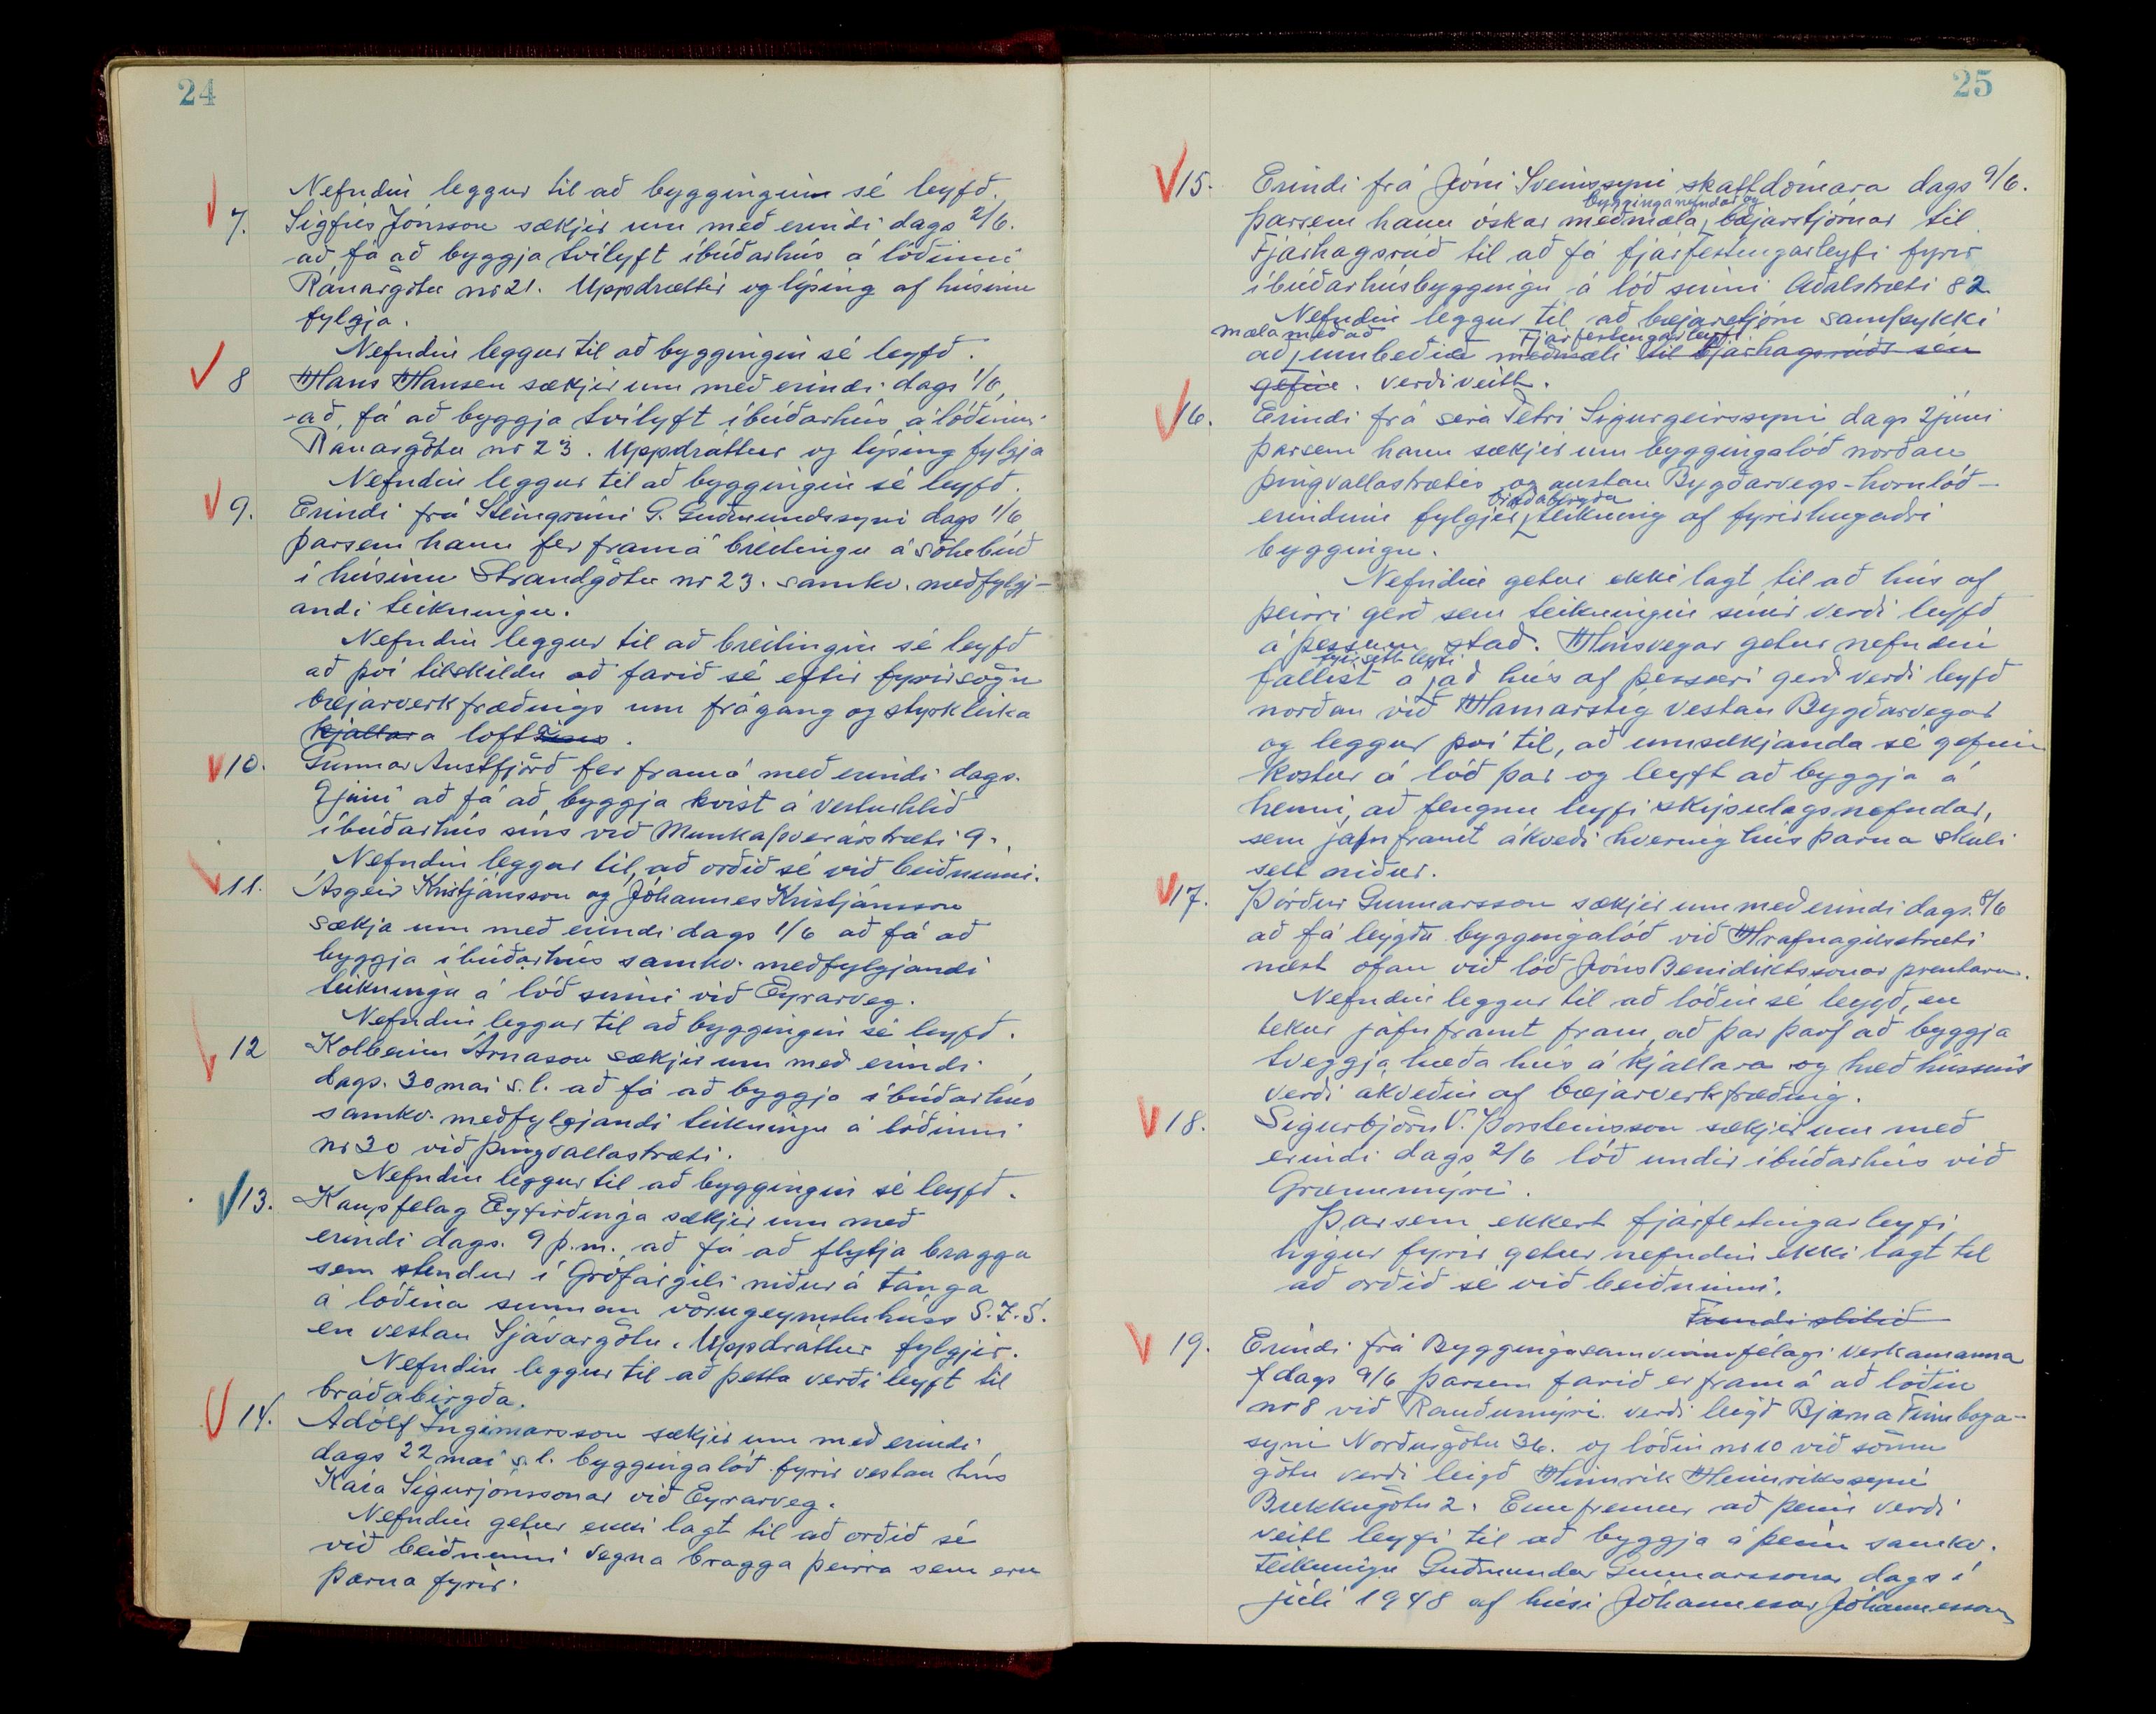 24
Nefndin leggur til að byggingin sé leyfð.
7. Sigfús Jónsson sækjir um með erindi dags 2/6.
að fá að byggja tvílyft íbúðarhús á lóðinni
Ránargötu nr 21. Uppdrættir og lýsing af húsinu
fylgja.
Nefndin leggur til að byggingin sé leyfð.
8 Hans Hansen sækjir um með erindi dags 1/6
að, fá að byggja tvílyft íbúðarhús á lóðinni
Ránargötu nr 23. Uppdráttur og lýsing fylgja
Nefndin leggur til að byggingin sé leyfð.
9. Erindi frá Steingrími G. Guðmundssyni dags 1/6
þarsem hann fer framá breitingu á sölubúð
í húsinu Strandgötu nr 23. samkv. meðfylgj-
andi teikningu.
Nefndin leggur til að breitingin sé leyfð
að því tilskildu að farið sé eftir fyrirsögn
bæjarverkfræðings um frágang og styrkleika
kjallara lofts.
10. Gunnar Austfjörð fer framá með erindi dags.
9 júní að fá að byggja kvist á vesturhlið
íbúðarhús síns við Munkaþverárstræti 9.
Nefndin leggur til, að orðið sé við beiðninni.
11. Ásgeir Kristjánsson og Jóhannes Kristjánsson
sækja um með erindi dags 1/6 að fá að
byggja íbúðarhús samkv. meðfylgjandi
teikningu á lóð sinni við Eyrarveg.
Nefndin leggur til að byggingin sé leyfð.
12 Kolbeinn Árnason sækjir um með erindi
dags. 30 maí s.l. að fá að byggja íbúðarhús
samkv. meðfylgjandi teikningu á lóðinni
nr 30 við þingvallastræti.
Nefndin leggur til að byggingin sé leyfð.
13. Kaupfelag Eyfirðinga sækjir um með
erindi dags. 9 þ.m. að fá að flytja bragga
sem stendur í Grófargili niður á Tanga
á lóðina sunnan vörugeymsluhúss S.Í.S.
en vestan Sjávargötu. Uppdráttur fylgjir.
Nefndin leggur til að þetta verði leyft til
bráðabirgða.
14. Adólf Ingimarsson sækjir um með erindi
dags 22 maí s.l. byggingalóð fyrir vestan hús
Kára Sigurjónssonar við Eyrarveg.
Nefndin getur ekki lagt til að orðið sé
við beiðninni vegna bragga þeirra sem eru
þarna fyrir.
25
15. Erindi frá Jóni Sveinssyni skattdómara dags 9/6.
bygginganefndar og
þarsem hann óskar meðmæla, bæjarstjórnar til
Fjárhagsráð til að fá fjárfestingarleyfi fyrir
íbúðarhúsbyggingu á lóð sinni Aðalstræti 82
Nefndin leggur til að bæjarstjórn samþykki
mæla með að Fjárfestingarleyfi
að umbeðið meðmæli til Fjárhagsráðs séu
gefin. verði veitt.
16. Erindi frá séra Pétri Sigurgeirssyni dags 2 júní
þarsem hann sækjir um byggingalóð norðan
þingvallastrætis og austan Bygðarvegs - hornlóð -
bráðabirgða
erindinu fylgjir, teikning af fyrirhugaðri
byggingu.
Nefndin getur ekki lagt til að hús af
þeirri gerð sem teikningin sínir verði leyfð
á þessum stað. Hinsvegar getur nefndin
fyrir sitt leyti
fallist á að hús af þessari gerð verði leyfð
norðan við Hamarstíg vestan Bygðarvegar
og leggur því til, að umsækjanda sé gefinn
kostur á lóð þar og leyft að byggja á
henni, að fengnu leyfi skipulagsnefndar,
sem jafnframt ákveði hvernig hús þarna skuli
sett niður.
17. Þórður Gunnarsson sækjir um með erindi dags. 8/6
að fá leygða byggingalóð við Hrafnagilsstræti
næst ofan við lóð Jóns Benidiktssonar prentara.
Nefndin leggur til að lóðin sé leygð, en
tekur jafnframt fram, að þar þarf að byggja
tveggja hæða hús á kjallara og hæð hússins
verði ákveðin af bæjarverkfræðing.
18. Sigurbjörn V. Þorsteinsson sækjir um með
erindi dags 2/6 lóð undir íbúðarhús við
Grænumýri.
Þarsem ekkert fjárfestingarleyfi
liggur fyrir getur nefndin ekki lagt til
að orðið sé við beiðninni.
Fundi slitið
19. Erindi frá Byggingasamvinnufélagi verkamanna
dags 9/6 þarsem farið er framá að lóðin
nr 8 við Rauðumýri verði leigð Bjarna Finnboga-
syni Norðurgötu 36. og lóðin nr 10 við sömu
götu verði leigð Hinrik Hinrikssyni
Brekkugötu 2. Ennfremur að þeim verði
veitt leyfi til að byggja á þeim samkv.
teikningu Guðmundar Gunnarssonar dags í
júlí 1948 af húsi Jóhannesar Jóhannessonar